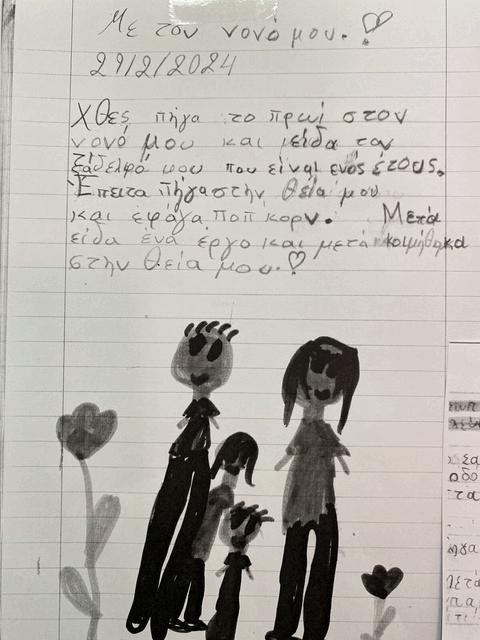 Με τον νονό μου.
29/2/2024
Χθες πήγα το πρωί στον
νονό μου και είδα τον
ξάδελφό μου που είναι ενός έτους.
Έπειτα πήγα στην θεία μου
και έφαγα ποπ κορν. Μετά
είδα ένα έργο και μετά κοιμήθηκα
στην θεία μου.